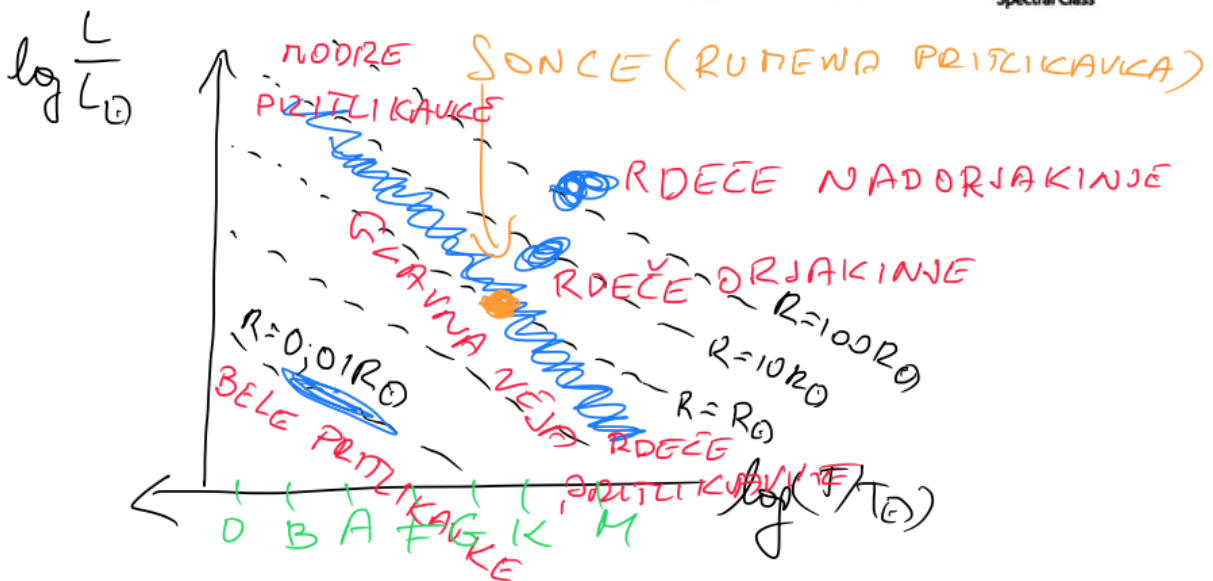 Spectral Class
log L/L⊙
MODRE
PRITLIKAVKE
SONCE (RUMENA PRITLIKAVKA)
RDEČE NADORJAKINJE
RDEČE ORJAKINJE
GLAVNA VEJA
R=100R⊙
R=10R⊙
R=R⊙
R=0,01R⊙
BELE PRITLIKAVKE
RDEČE
PRITLIKAVKE
log(T/T⊙)
O B A F G K M